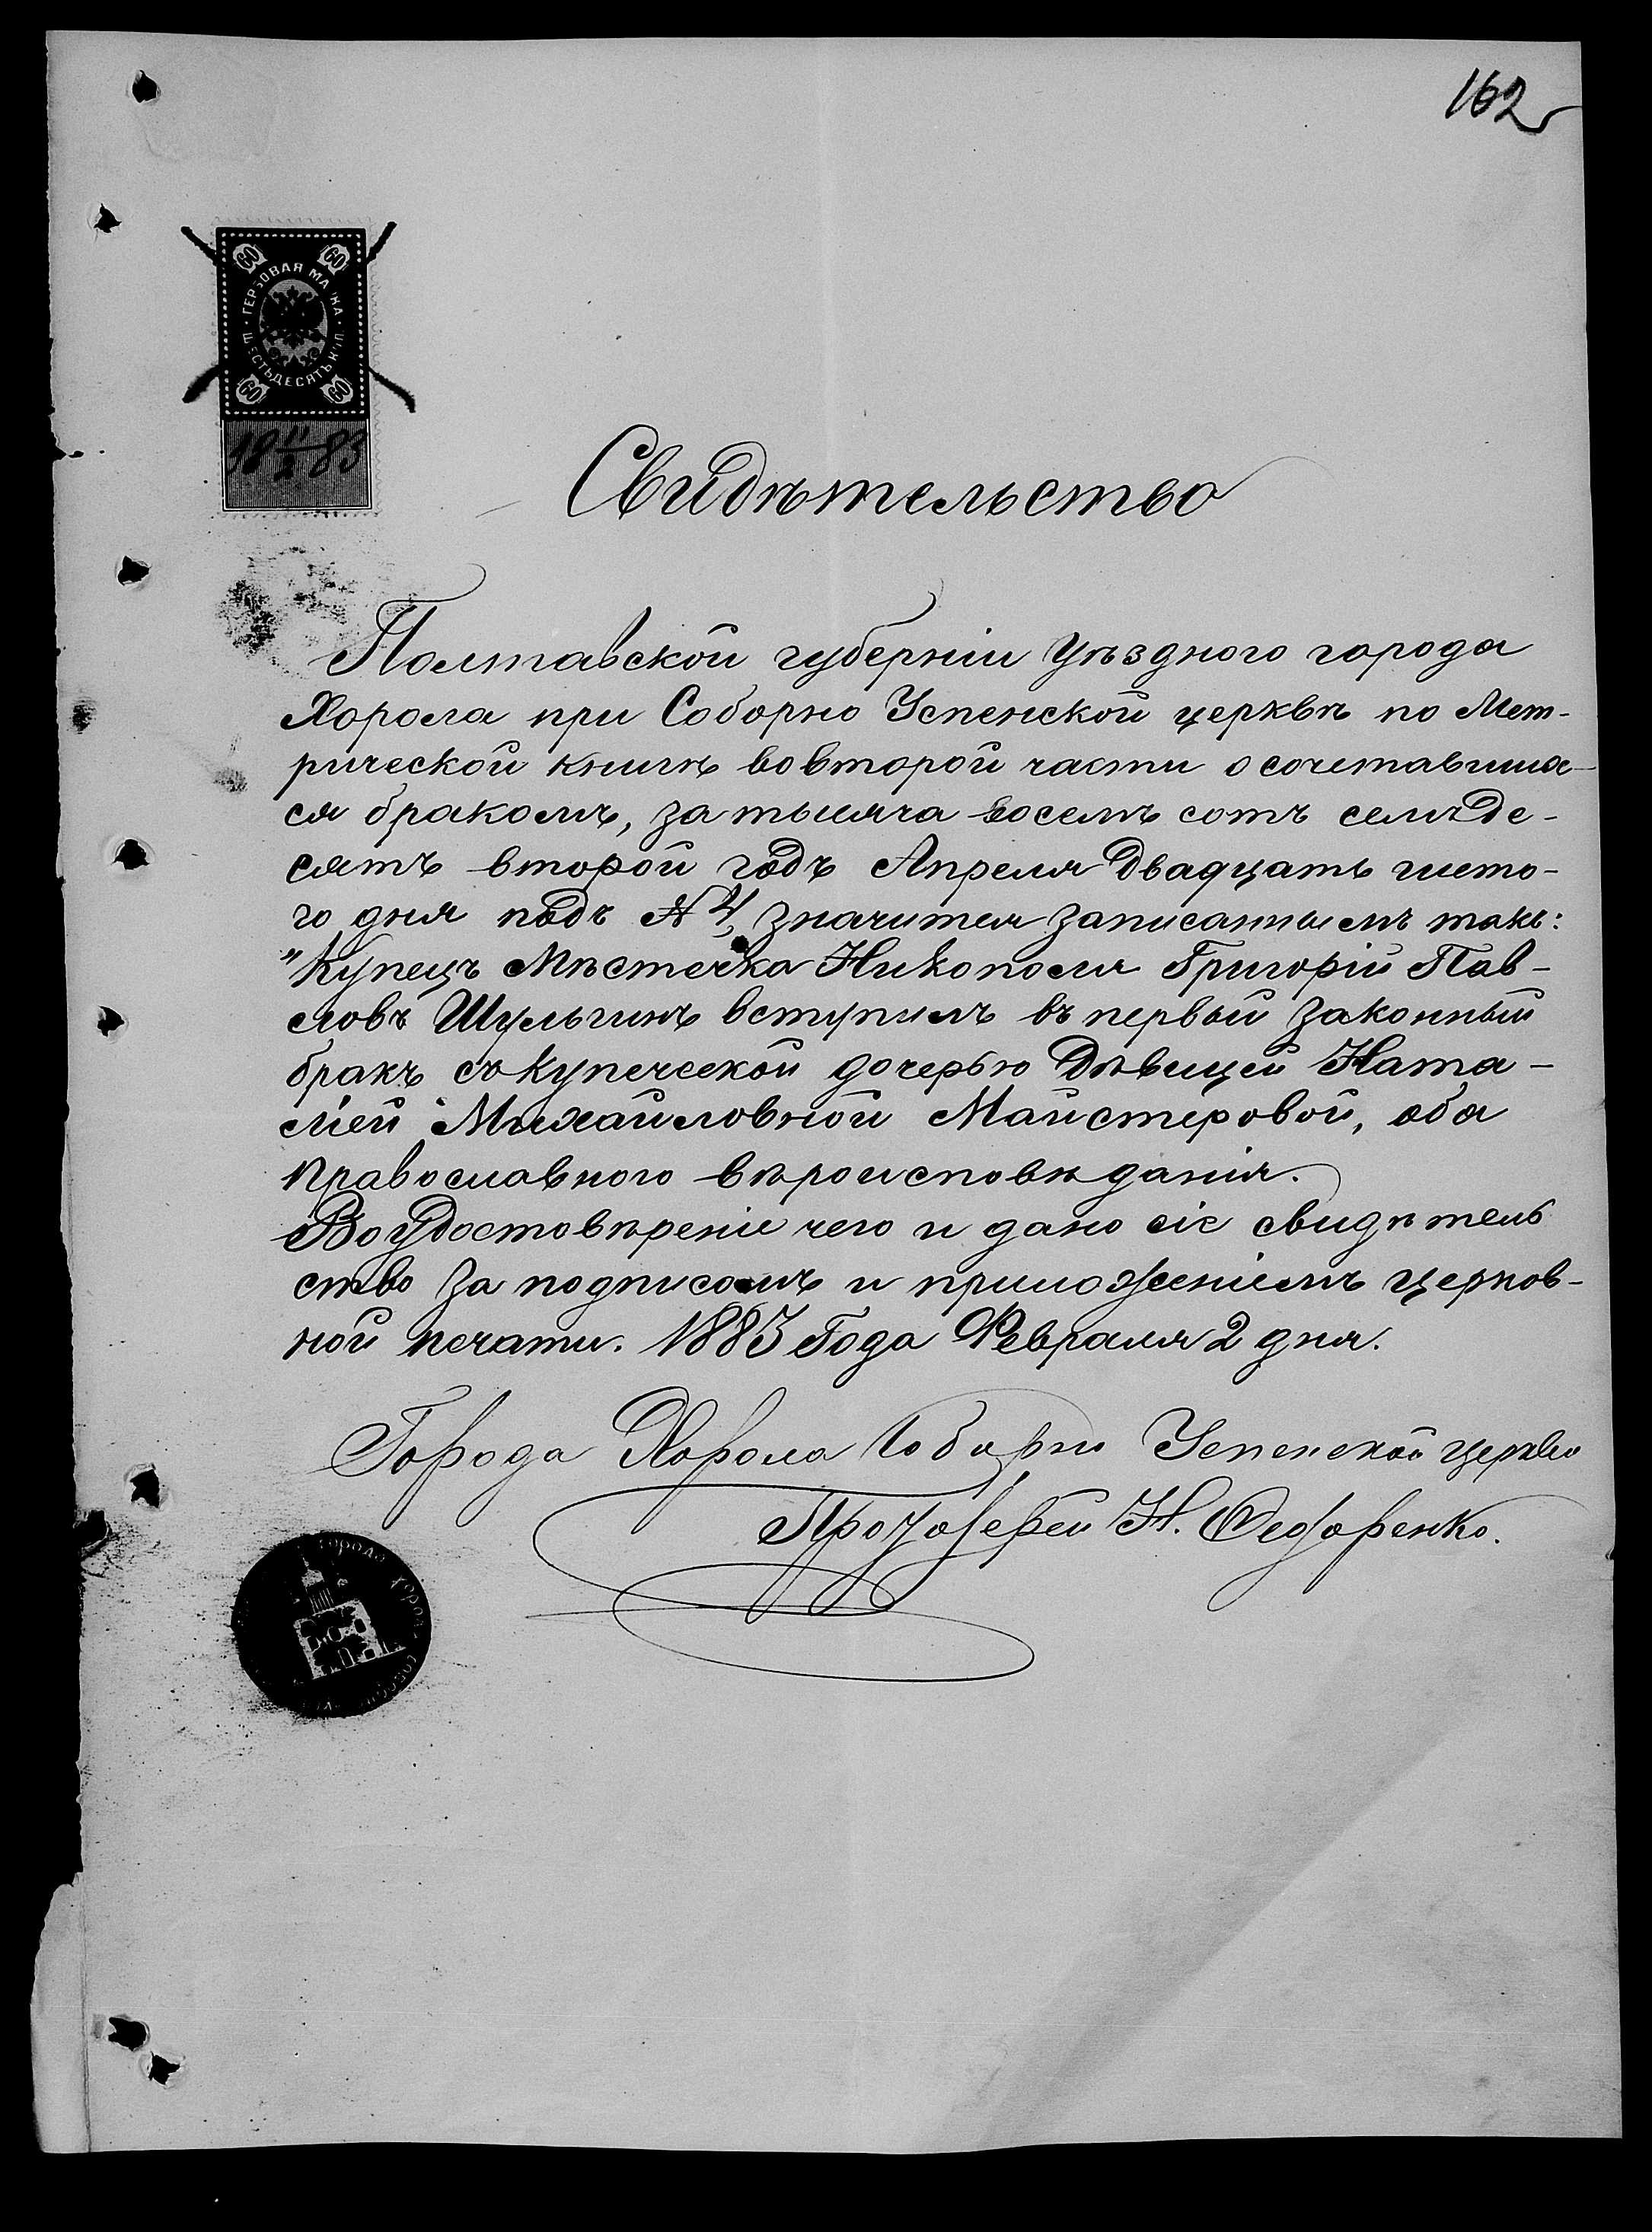 162
60 60
ГЕРБОВАЯ МАРКА
ШЕСТЬДЕСЯТЪ КОП.
60 60
18 11/2 83
Свидѣтельство
Полтавской губерніи Уѣзднаго города
Хорола при Соборно Успенской церквѣ по Мет-
рической книгѣ во второй части о сочетавшихъ-
ся бракомъ, за тысяча восемъ сотъ семьде-
сятъ второй годъ Апреля двадцать шето-
го дня подъ № 4, значится записаннымъ такъ:
"Купецъ Мѣстечка Никополя Григорій Пав-
ловъ Шульгинъ вступилъ въ первый законный
бракъ съ купеческой дочерью Дѣвицей Ната-
ліей Михайловной Майстеровой, оба
Православного вѣроисповѣданія.
Во удостовѣреніе чего и дано сіе свидѣтель
ство за подписомъ и приложеніемъ церков-
ной печати. 1883 Года Февраля 2 дня.
Города Хорола Соборно Успенской церкви
Протоіерей Н. Федоренко.
города Хорола